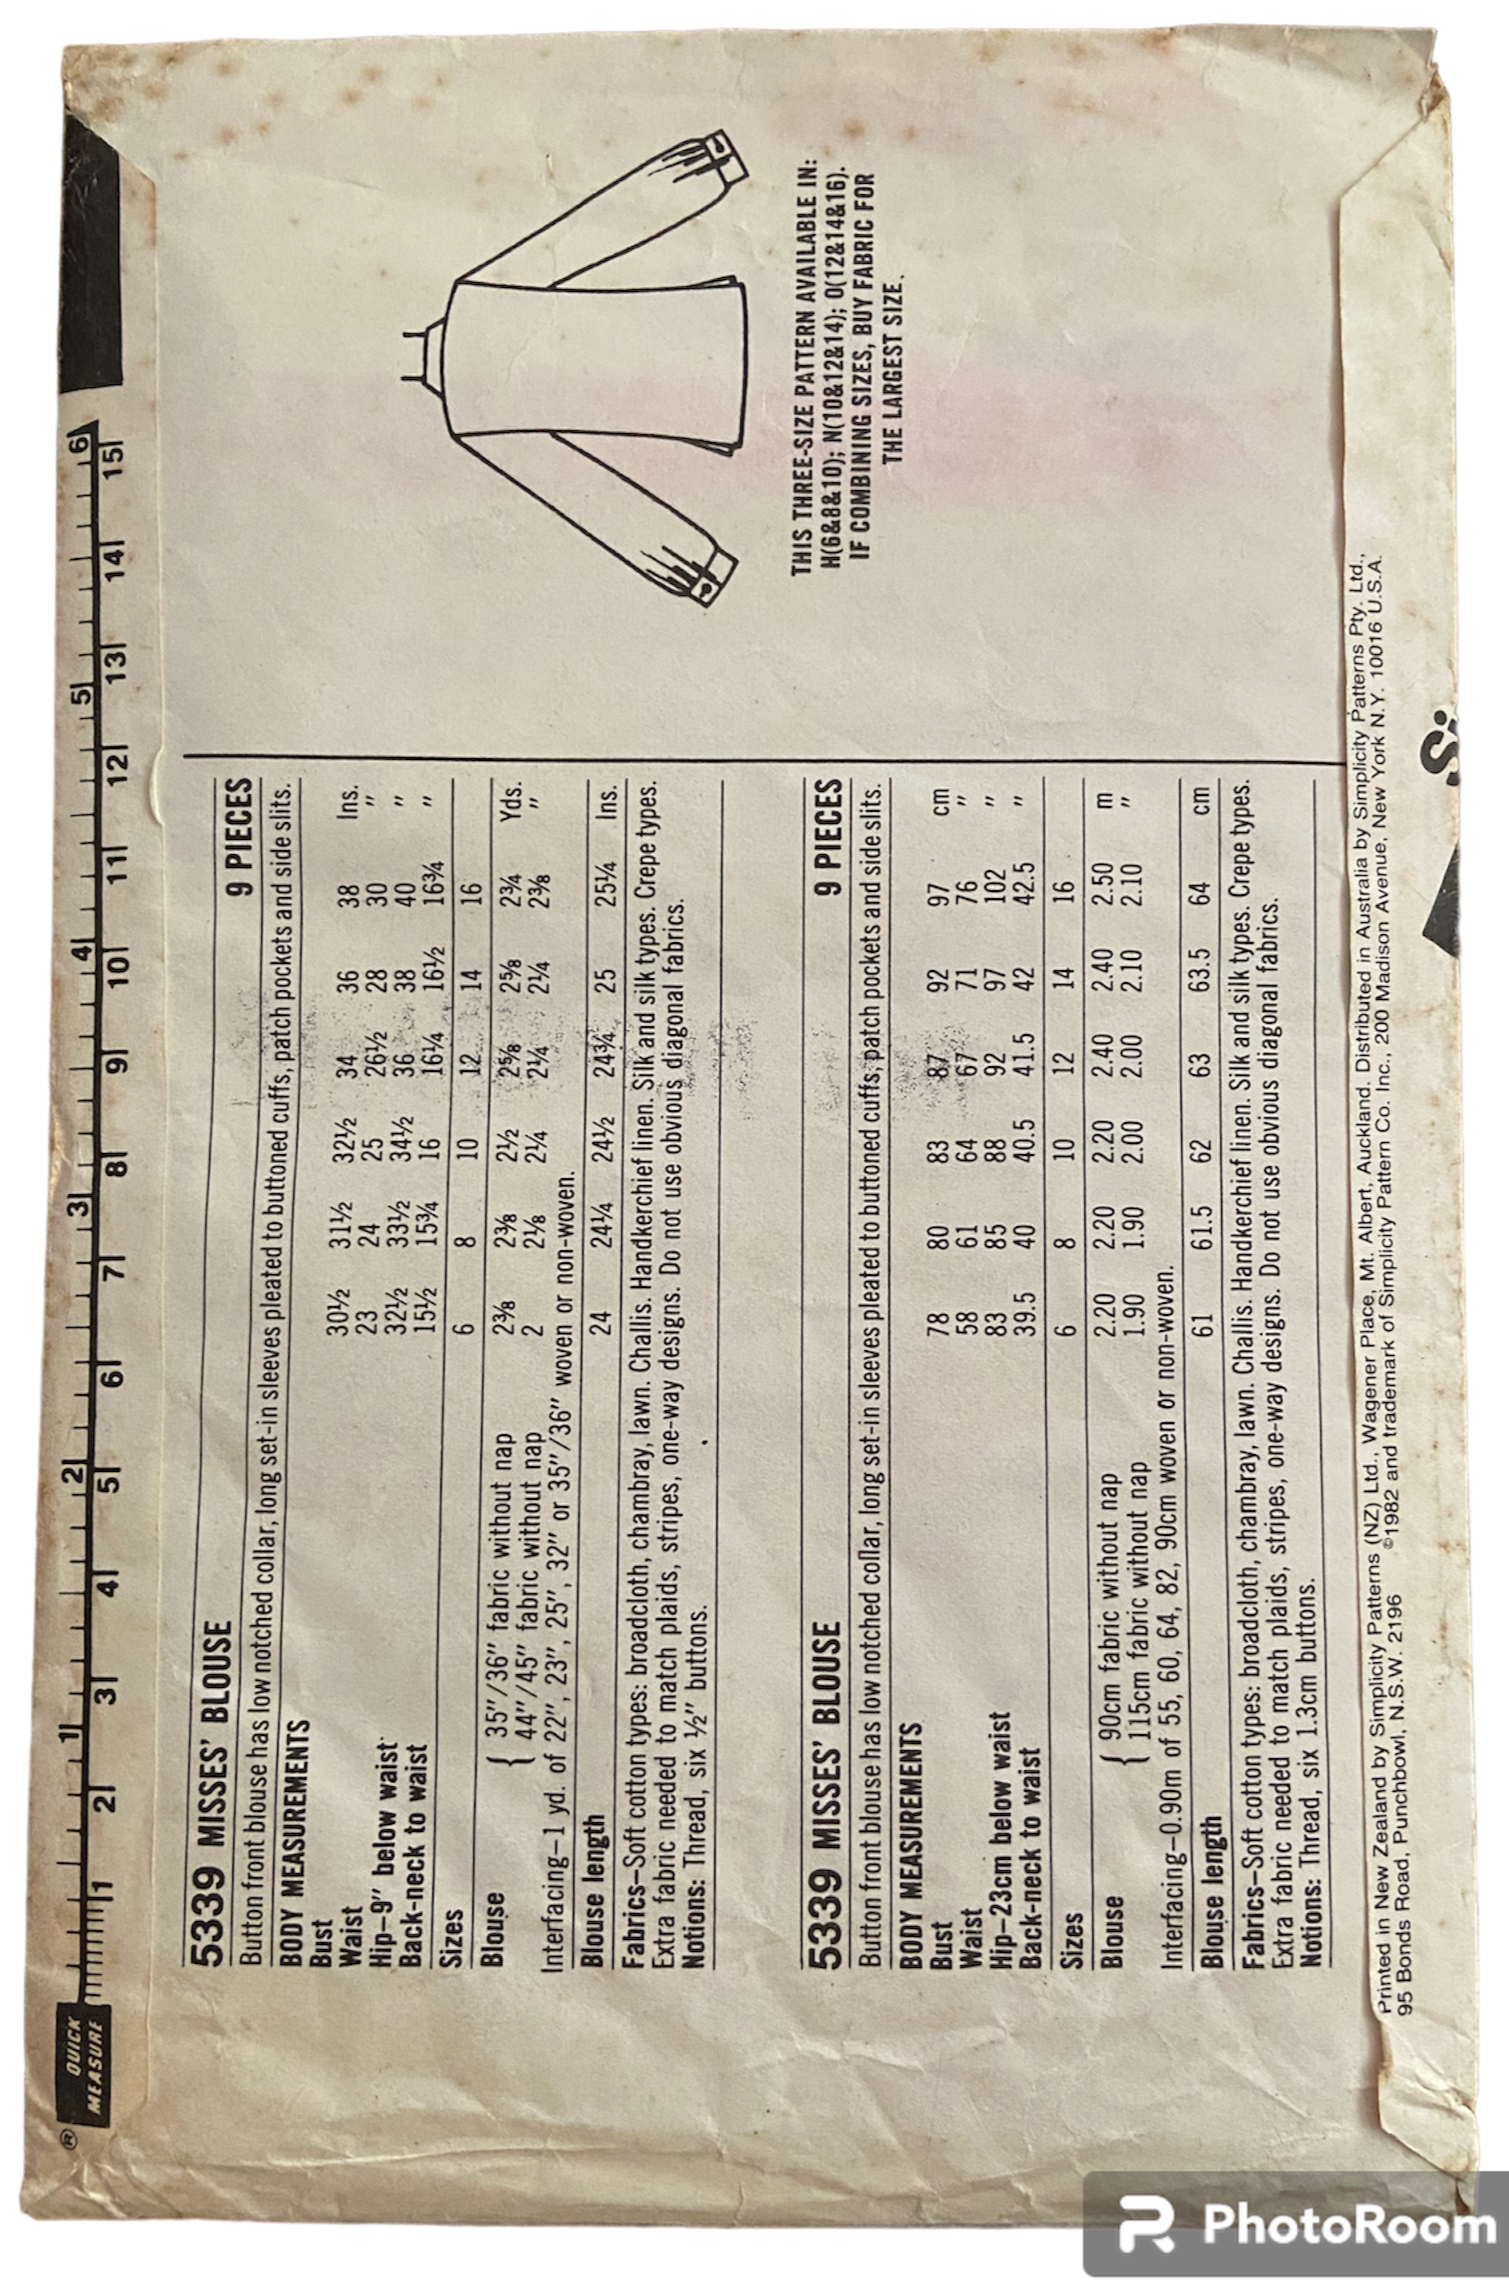 5339 MISSES' BLOUSE 9 PIECES
Button front blouse has low notched collar, long set-in sleeves pleated to buttoned cuffs, patch pockets and side slits.
BODY MEASUREMENTS
Bust 30½ 31½ 32½ 34 36 38 Ins.
Waist 23 24 25 26½ 28 30 "
Hip–9" below waist 32½ 33½ 34½ 36 38 40 "
Back-neck to waist 15½ 15¾ 16 16¼ 16½ 16¾ "
Sizes 6 8 10 12 14 16
Blouse { 35"/36" fabric without nap 2⅜ 2⅜ 2½ 2⅝ 2⅝ 2¾ Yds.
44"/45" fabric without nap 2 2⅛ 2¼ 2¼ 2¼ 2⅜ "
Interfacing–1 yd. of 22", 23", 25", 32" or 35"/36" woven or non-woven.
Blouse length 24 24¼ 24½ 24¾ 25 25¼ Ins.
Fabrics–Soft cotton types: broadcloth, chambray, lawn. Challis. Handkerchief linen. Silk and silk types. Crepe types.
Extra fabric needed to match plaids, stripes, one-way designs. Do not use obvious diagonal fabrics.
Notions: Thread, six ½" buttons.
5339 MISSES' BLOUSE 9 PIECES
Button front blouse has low notched collar, long set-in sleeves pleated to buttoned cuffs, patch pockets and side slits.
BODY MEASUREMENTS
Bust 78 80 83 87 92 97 cm
Waist 58 61 64 67 71 76 "
Hip–23cm below waist 83 85 88 92 97 102 "
Back-neck to waist 39.5 40 40.5 41.5 42 42.5 "
Sizes 6 8 10 12 14 16
Blouse { 90cm fabric without nap 2.20 2.20 2.20 2.40 2.40 2.50 m
115cm fabric without nap 1.90 1.90 2.00 2.00 2.10 2.10 "
Interfacing–0.90m of 55, 60, 64, 82, 90cm woven or non-woven.
Blouse length 61 61.5 62 63 63.5 64 cm
Fabrics–Soft cotton types: broadcloth, chambray, lawn. Challis. Handkerchief linen. Silk and silk types. Crepe types.
Extra fabric needed to match plaids, stripes, one-way designs. Do not use obvious diagonal fabrics.
Notions: Thread, six 1.3cm buttons.
THIS THREE-SIZE PATTERN AVAILABLE IN:
H(6&8&10); N(10&12&14); O(12&14&16).
IF COMBINING SIZES, BUY FABRIC FOR
THE LARGEST SIZE.
Printed in New Zealand by Simplicity Patterns (NZ) Ltd., Wagener Place, Mt. Albert, Auckland. Distributed in Australia by Simplicity Patterns Pty. Ltd.,
95 Bonds Road, Punchbowl, N.S.W. 2196 ©1982 and trademark of Simplicity Pattern Co. Inc., 200 Madison Avenue, New York N.Y. 10016 U.S.A.
® QUICK
MEASURE
1 2 3 4 5 6
1 2 3 4 5 6 7 8 9 10 11 12 13 14 15
PhotoRoom